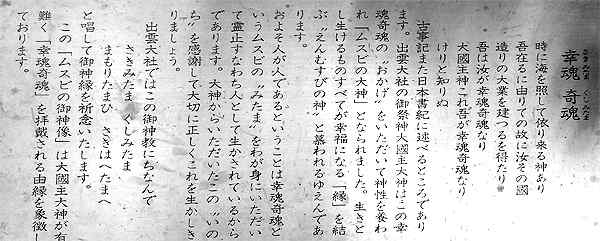 幸魂 奇魂
さきみたま くしみたま
時に海を照して依り来る神あり
吾在るに由りての故に汝その國
造りの大業を建つるを得たり
吾は汝が幸魂奇魂なり
大國主神これ吾が幸魂奇魂なり
けりと知りぬ
古事記また日本書紀に述べるところであり
ます。出雲大社の御祭神大國主大神はこの幸
魂奇魂の〝おかげ〟をいただいて神性を養わ
れ「ムスビの大神」となられました。生きと
し生けるものすべてが幸福になる「縁」を結
ぶ〝えんむすびの神〟と慕われるゆえんであ
ります。
およそ人が人であるということは幸魂奇魂と
いうムスビの〝みたま〟をわが身にいただい
て霊止すなわち人として生かされているから
であります。大神からいただいたこの〝いの
ち〟を感謝して大切に正しくこれを生かしき
りましょう。
出雲大社ではこの御神教にちなんで
さきみたま くしみたま
まもりたまひ さきはへたまへ
と唱して御神縁を祈念いたします。
この「ムスビの御神像」は大國主大神が有
難く「幸魂奇魂」を拝戴される由縁を象徴し
ております。